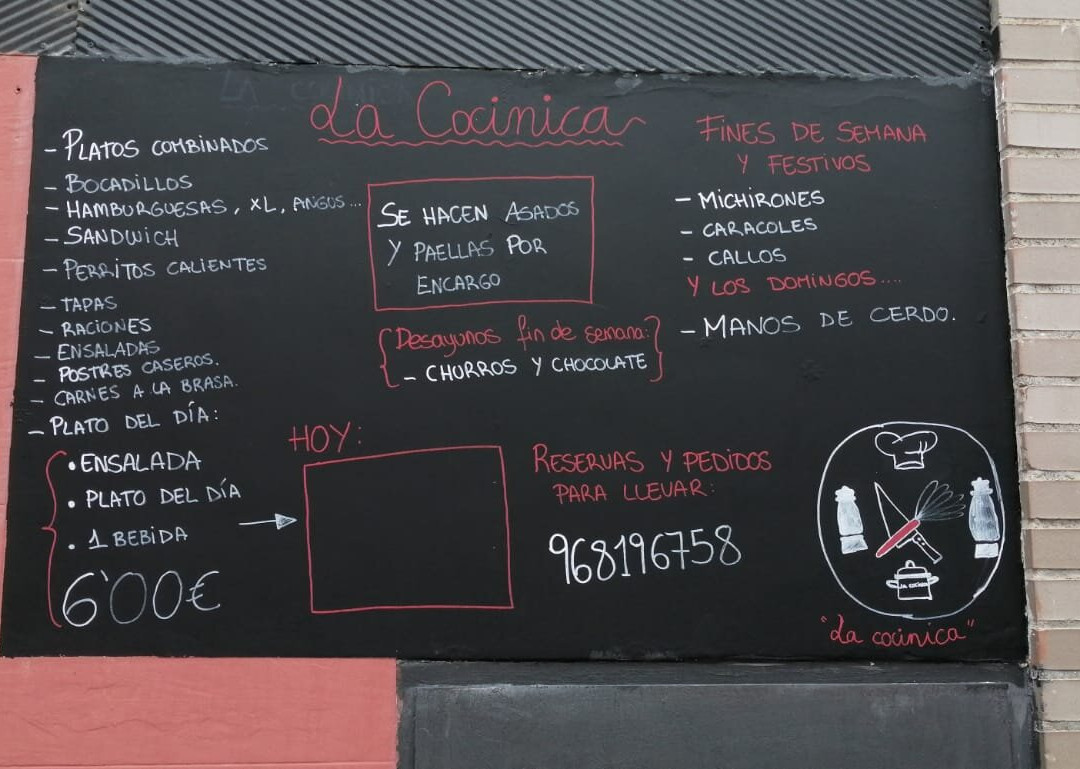 La Cocinica
- PLATOS COMBINADOS
- BOCADILLOS
- HAMBURGUESAS, XL, ANGUS...
- SANDWICH
- PERRITOS CALIENTES
- TAPAS
- RACIONES
- ENSALADAS
- POSTRES CASEROS.
- CARNES A LA BRASA.
- PLATO DEL DÍA:
• ENSALADA
• PLATO DEL DÍA
• 1 BEBIDA
6'00€
SE HACEN ASADOS
Y PAELLAS POR
ENCARGO
Desayunos fin de semana:
- CHURROS Y CHOCOLATE
HOY:
FINES DE SEMANA
Y FESTIVOS
- MICHIRONES
- CARACOLES
- CALLOS
Y LOS DOMINGOS....
- MANOS DE CERDO.
RESERVAS Y PEDIDOS
PARA LLEVAR:
968196758
LA COCINICA
"La cocinica"